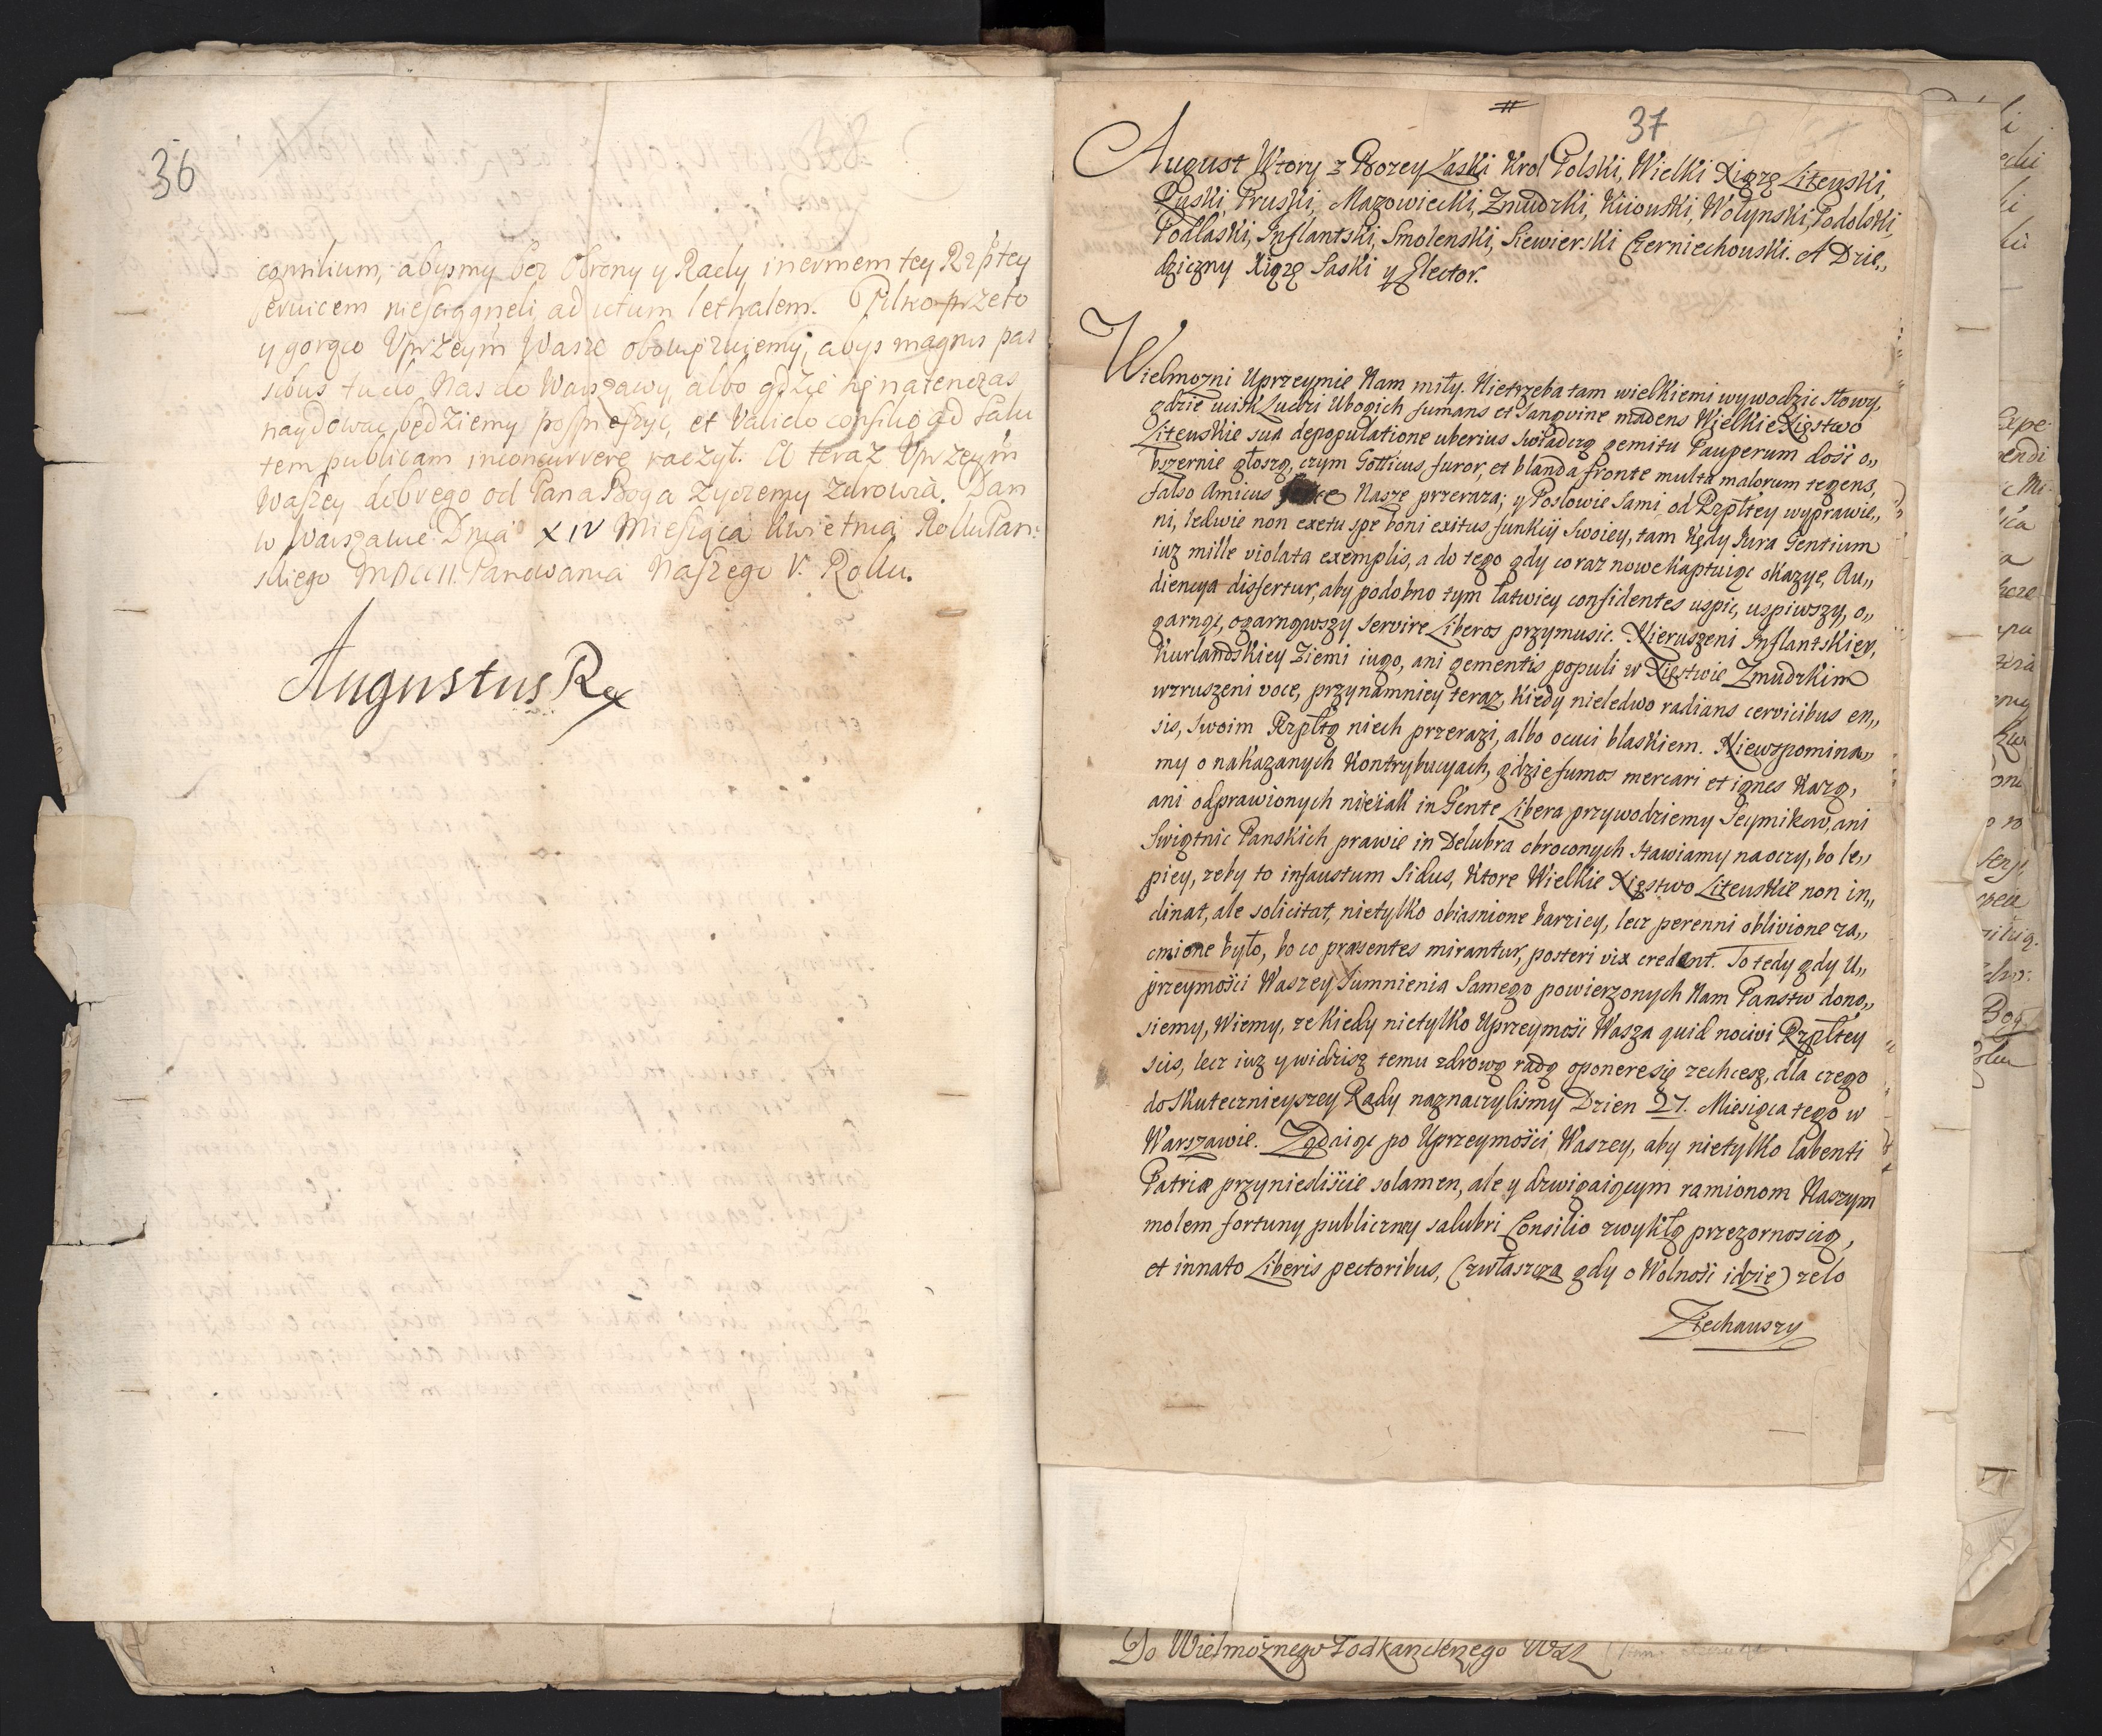 36
consilium, abysmy bez Obrony y Rady inermem tey Rzptey
cervicem nieściągneli, ad ictum lethalem. Pilno przeto
y gorąco Vprzeym Wasze obowięzuiemy, abys magnis pas
sibus tu do Nas do Warszawy, albo gdzie się natenczas
naydować będziemy pospieszyć, et Valido consilio ad salu
tem publicam inconcurrere raczył. A teraz Vprzeym
Waszey dobrego od Pana Boga zyczemy zdrowia. Dan
w Warszawie Dnia XIV Miesiąca Kwietnia Roku Pan:
skiego MDCCII. Panowania Naszego V. Roku.
Augustus Rex
37
August Wtory z Bozey Łaski Krol Polski, Wielki Xiąze Litewski,
Ruski, Pruski, Mazowiecki, Zmudzki, Kiiowski, Wołynski, Podolski,
Podlaski, Inflantski, Smolenski, Siewierski Czerniechowski. A Dzie„
dziczny Xiąze Saski y Elector.
Wielmozni Uprzeymie Nam miły. Nietrzeba tam wielkiemi wywodzic słowy,
gdzie ucisk Ludzi Ubogich fumans et Sangvine madens Wielkie Xięstwo
Litewskie sua depopulatione uberius swiadczą gemitu Pauperum dość o„
bszernie głoszą, czym Gotticus furor, et blanda fronte multa malorum tegens,
falso Amicus Nasze przeraza; y Posłowie Sami, od Rzpltey wyprawie„
ni, ledwie non exetu spe boni exitus funkcij Swoiey, tam kędy Jura Gentium
iuz mille violata exemplis, a do tego gdy co raz nowe kaptuiąc okazye, Au„
diencya differtur, aby podobno tym łatwiey confidentes uspic, uspiwszy, o„
garnąc, ogarnąwszy servire Liberos przymusic. Nieruszeni Inflantskiey,
Kurlandskiey Ziemi iugo, ani gementis populi w Xięstwie Zmudzkim
wzruszeni voce, przynamniey teraz, kiedy nieledwo radians cervicibus en„
sis, swoim Rzpltą niech przerazi, albo ocuci blaskiem. Niewspomina„
my o nakazanych Kontrybucyach, gdzie fumos mercari et ignes każą,
ani odprawionych nieiak in Gente Libera przywodziemy Seymikow, ani
Swiątnic Panskich prawie in Delubra obroconych stawiamy na oczy, bo le„
piey, zeby to infaustum Sidus, ktore Wielkie Xięstwo Litewskie non in„
clinat, ale solicitat, nietylko obiasnione barziey, lecz perenni oblivione za„
cmione było, bo co præsentes mirantur, posteri vix credent. To tedy gdy U„
przeymości Waszey Sumnienia Samego powierzonych Nam Panstw dono„
siemy, Wiemy, ze kiedy nietylko Uprzeymość Wasza quid nocivi Rzpltey
scis, lecz iuz y widzisz temu zdrową radą oponere się zechcesz, dla czego
do skutecznieyszey Rady naznaczylismy Dzien 27. Miesiąca tego w
Warszawie. Ządaiąc po Uprzeymości Waszey, aby nietylko labenti
Patriæ przynieśliście solamen, ale y dzwigaiącym ramionom Naszym
molem fortuny publiczney salubri Consilio zwykłą przezornoscią,
et innato Liberis pectoribus, (zwłaszcza gdy o Wolność idzie) zelo
Ziechawszy
Do Wielmoznego Podkanclerzego WXL